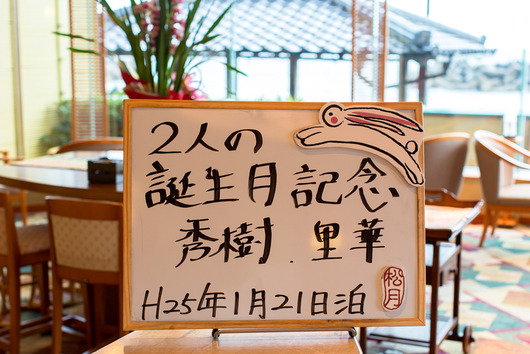 2人の
誕生月記念
秀樹.里華
H25年1月21日泊
松月